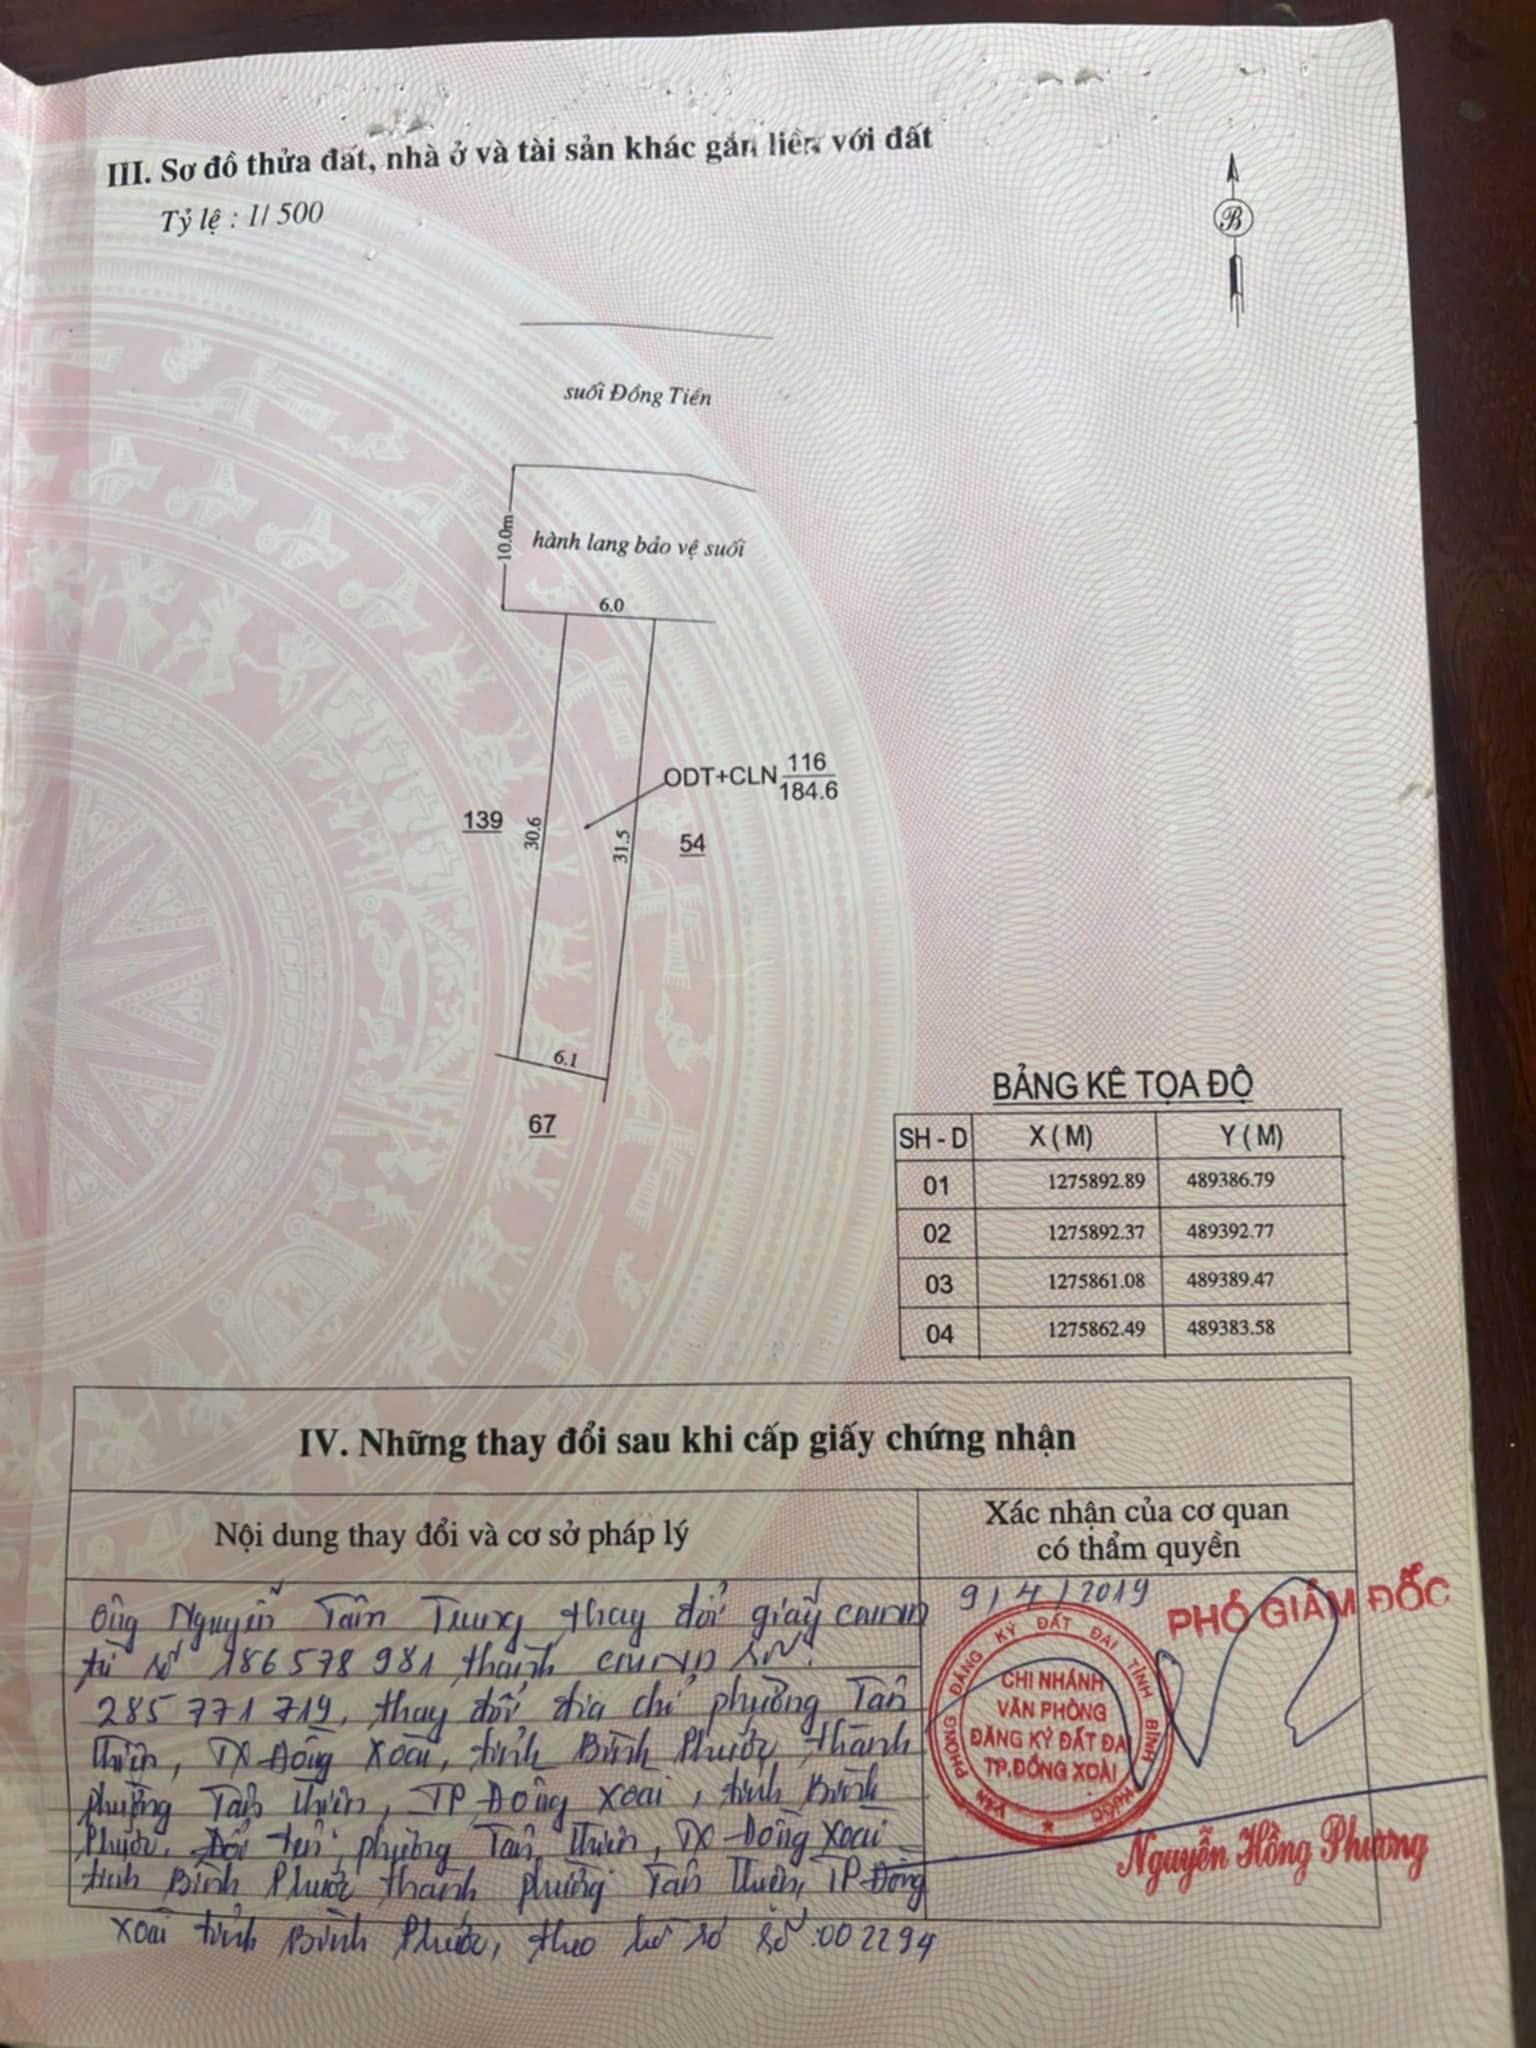 III. Sơ đồ thửa đất, nhà ở và tài sản khác gắn liền với đất
Tỷ lệ : 1/ 500
B
suối Đồng Tiền
10.0m
hành lang bảo vệ suối
6.0
ODT+CLN 116
184.6
139
30.6
31.5
54
6.1
67
BẢNG KÊ TỌA ĐỘ
SH - D X ( M) Y ( M)
01 1275892.89 489386.79
02 1275892.37 489392.77
03 1275861.08 489389.47
04 1275862.49 489383.58
IV. Những thay đổi sau khi cấp giấy chứng nhận
Nội dung thay đổi và cơ sở pháp lý
Xác nhận của cơ quan
có thẩm quyền
Ông Nguyễn Tấn Trung thay đổi giấy CMND
từ số 186578981 thành CMND số:
285771719, thay đổi địa chỉ phường Tân
Thiện, TX Đồng Xoài, tỉnh Bình Phước thành
phường Tân Thiện, TP Đồng Xoài, tỉnh Bình
Phước. Đổi tên phường Tân Thiện, TX Đồng Xoài
tỉnh Bình Phước thành phường Tân Thiện, TP Đồng
Xoài tỉnh Bình Phước, theo hồ sơ số: 002294
9/4/2019
PHÓ GIÁM ĐỐC
VĂN PHÒNG ĐĂNG KÝ ĐẤT ĐAI TỈNH BÌNH PHƯỚC
CHI NHÁNH
VĂN PHÒNG
ĐĂNG KÝ ĐẤT ĐAI
TP.ĐỒNG XOÀI
Nguyễn Hồng Phương